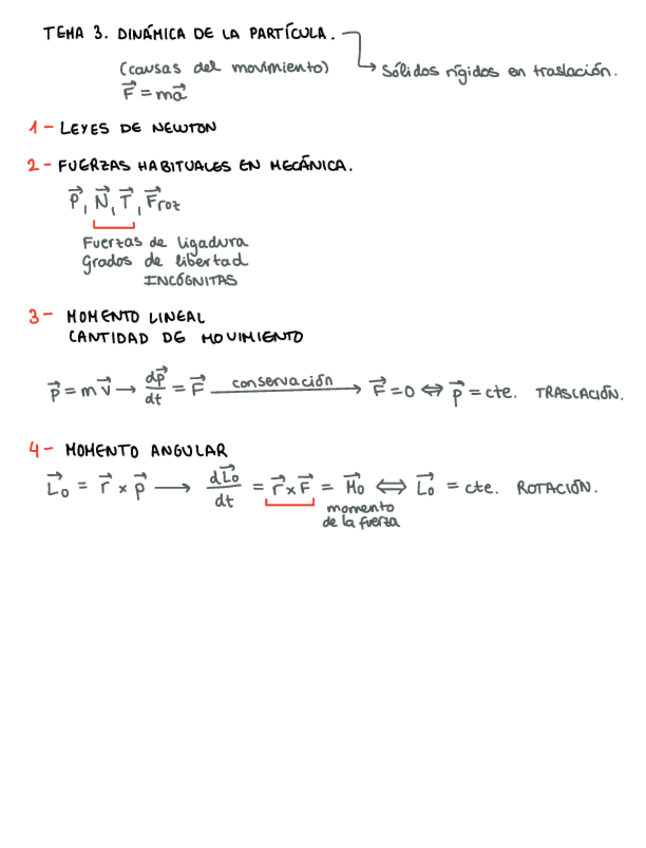 TEMA 3. DINÁMICA DE LA PARTÍCULA.
(causas del movimiento) → Sólidos rígidos en traslación.
F⃗ = ma⃗
1- LEYES DE NEWTON
2- FUERZAS HABITUALES EN MECÁNICA.
P⃗, N⃗, T⃗, F⃗roz
Fuerzas de ligadura
Grados de libertad
INCÓGNITAS
3- MOMENTO LINEAL
CANTIDAD DE MOVIMIENTO
p⃗ = m v⃗ → dp⃗/dt = F⃗ conservación → F⃗ = 0 ⇔ p⃗ = cte. TRASLACIÓN.
4- MOMENTO ANGULAR
L⃗o = r⃗ x p⃗ → dL⃗o/dt = r⃗ x F⃗ = M⃗o ⇔ L⃗o = cte. ROTACIÓN.
momento
de la fuerza